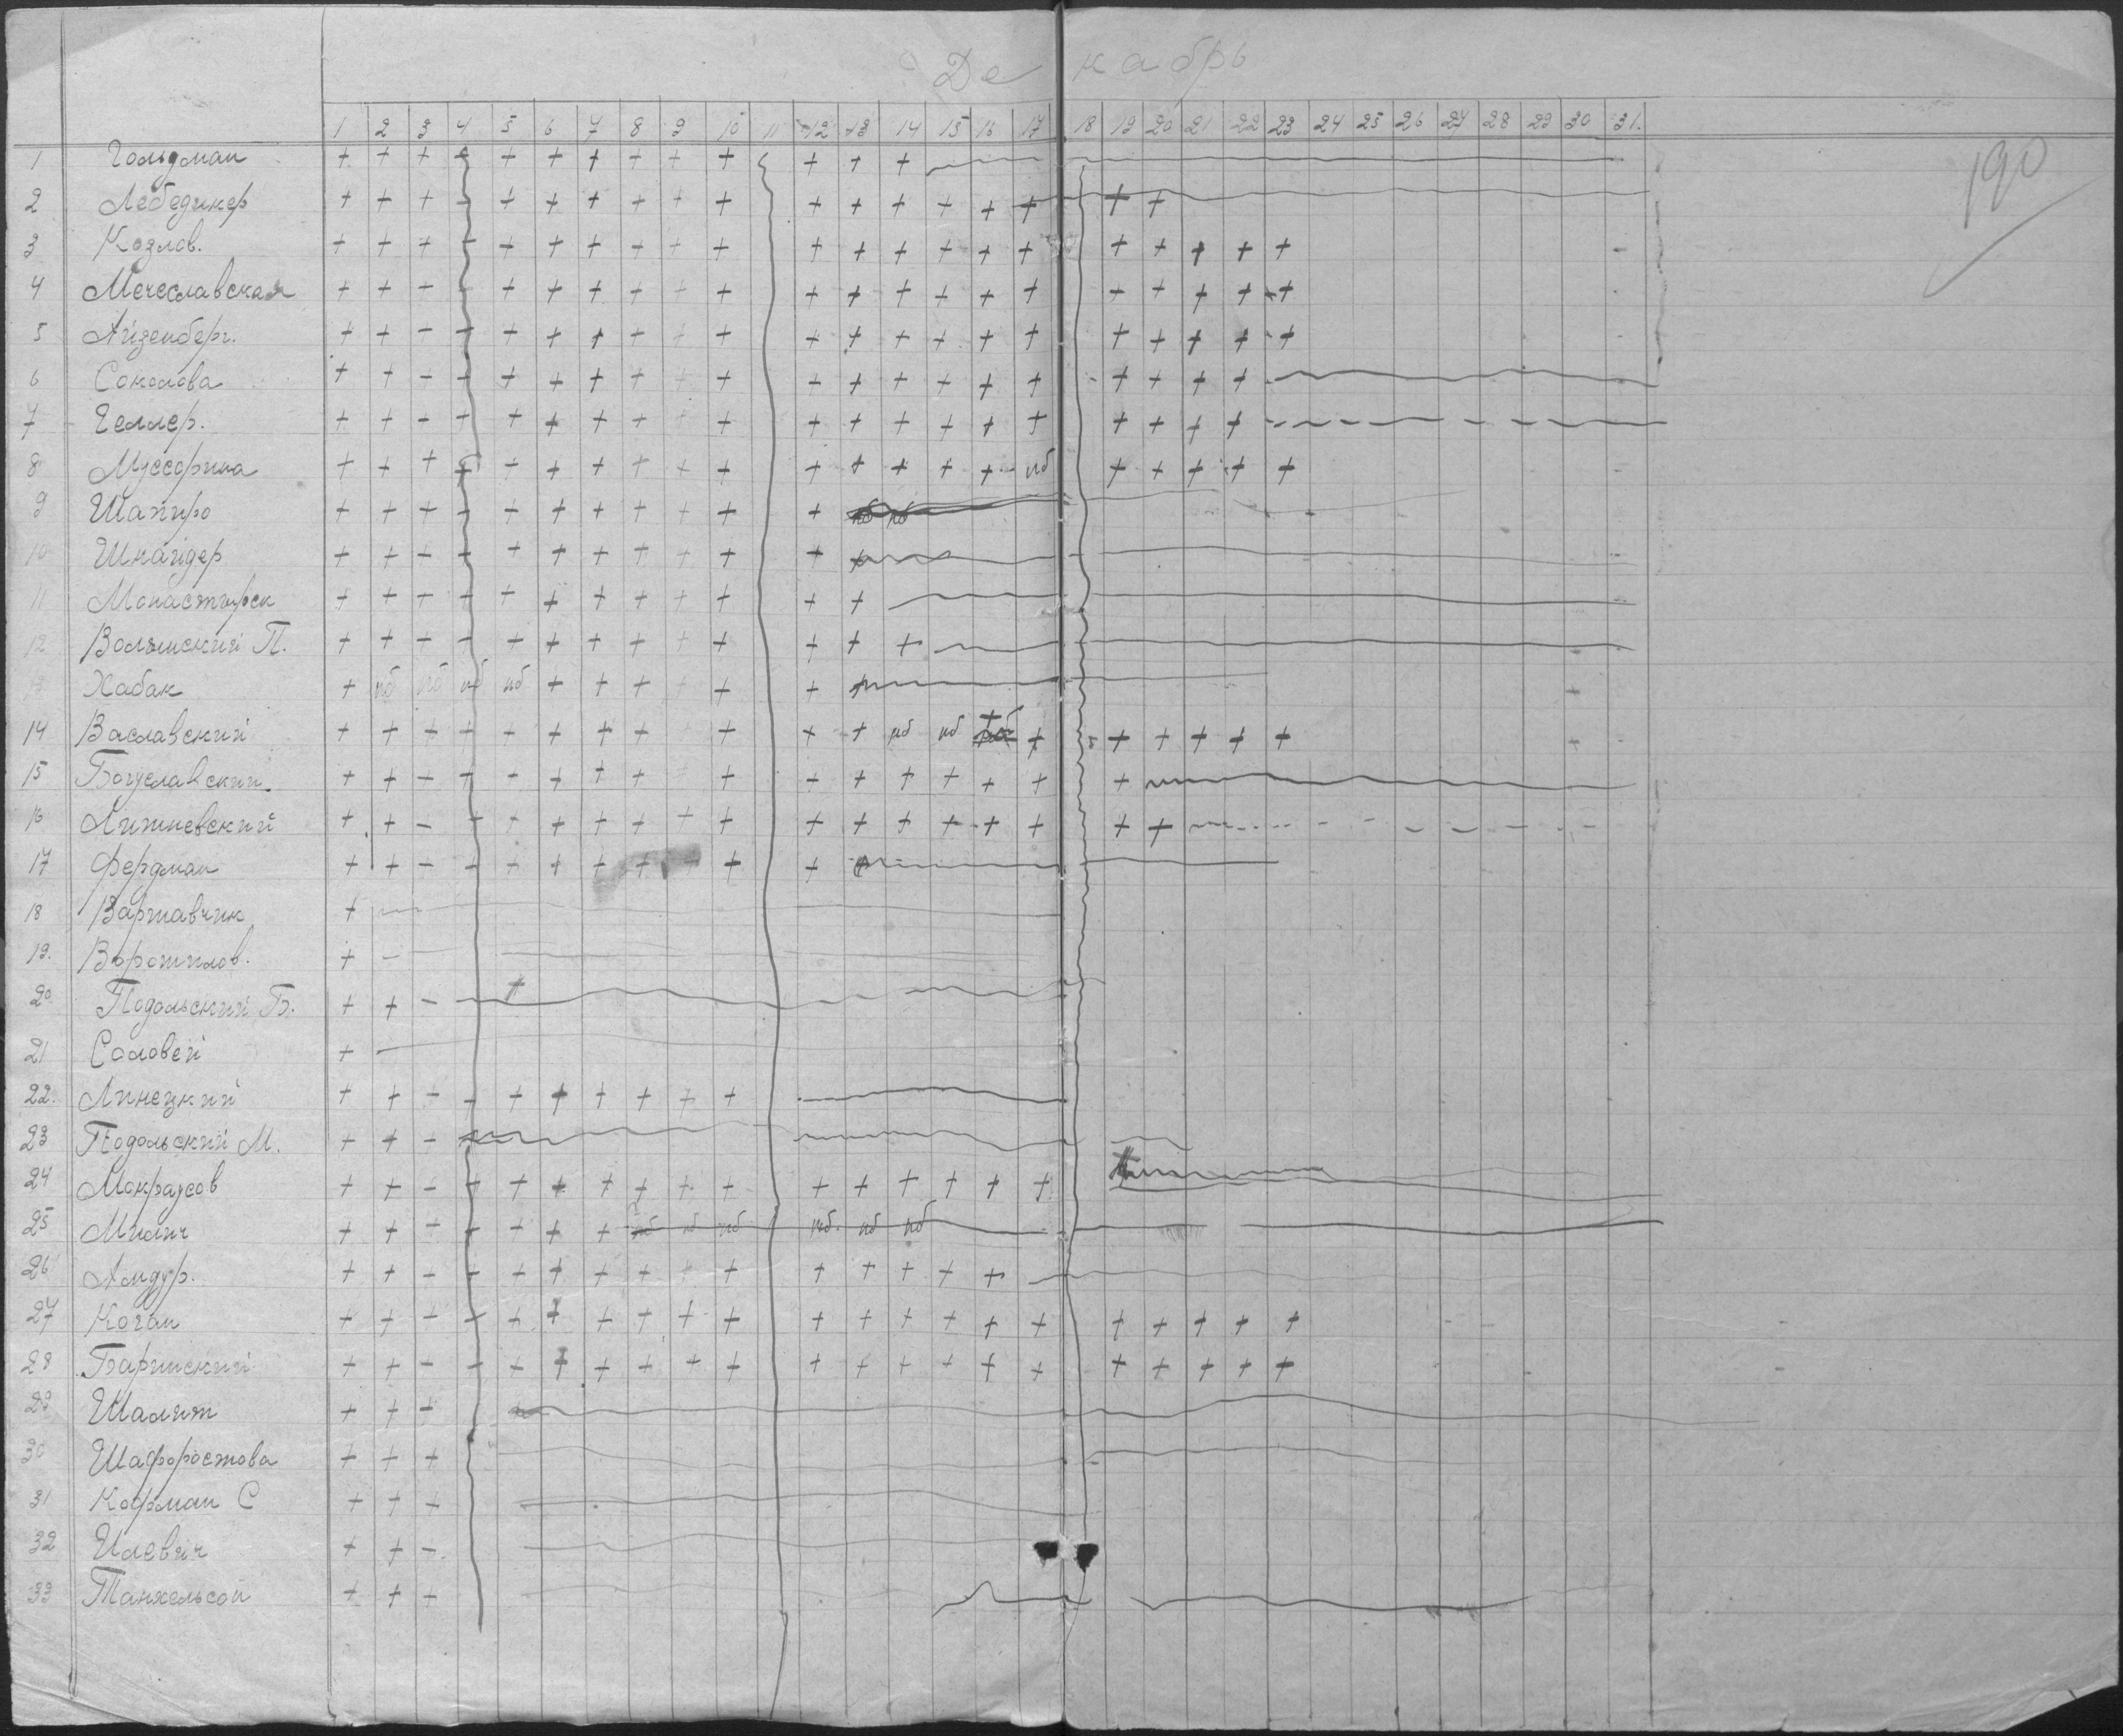 Декабрь
190
1 2 3 4 5 6 7 8 9 10 11 12 13 14 15 16 17 18 19 20 21 22 23 24 25 26 27 28 29 30 31.
1 Гольдман + + + + + + + + + + + + +
2 Лебединер + + + + + + + + + + + + + + + + + +
3 Козлов. + + + + + + + + + + + + + + + + + + + + +
4 Мечеславская + + + + + + + + + + + + + + + + + + + + +
5 Айзенберг. + + + + + + + + + + + + + + + + + + + + +
6 Соколова + + + + + + + + + + + + + + + + + + + +
7 Геллер. + + + + + + + + + + + + + + + + + + + +
8 Муссорина + + + + + + + + + + + + + + + нб + + + + +
9 Шапиро + + + + + + + + + + + нб нб
10 Шнайдер + + + + + + + + + + + +
11 Монастырск + + + + + + + + + + + +
12 Волынский П. + + + + + + + + + + + + +
Хабак + нб нб нб нб + + + + + + +
14 Ваславский + + + + + + + + + + + + нб нб нб + + + + + +
15 Богуславский + + + + + + + + + + + + + + + + +
16 Лижневский + + + + + + + + + + + + + + + + + +
17 Фердман + + + + + + + + + + + +
18 Варшавчик +
19. Ворошилов. +
20 Подольский Б. + + +
21 Соловей +
22. Линецкий + + + + + + + + + +
23 Подольский М. + + +
24 + + + + + + + + + + + + + + + +
25 Милич + + + + + + + нб нб нб нб. нб нб
26 Амдур. + + + + + + + + + + + + + + +
27 Коган + + + + + + + + + + + + + + + + + + + + +
28 + + + + + + + + + + + + + + + + + + + + +
29 Шалит + + +
30 Шафоростова + + +
31 Кофман С + + +
32 + + +
33 Танхельсон + + +